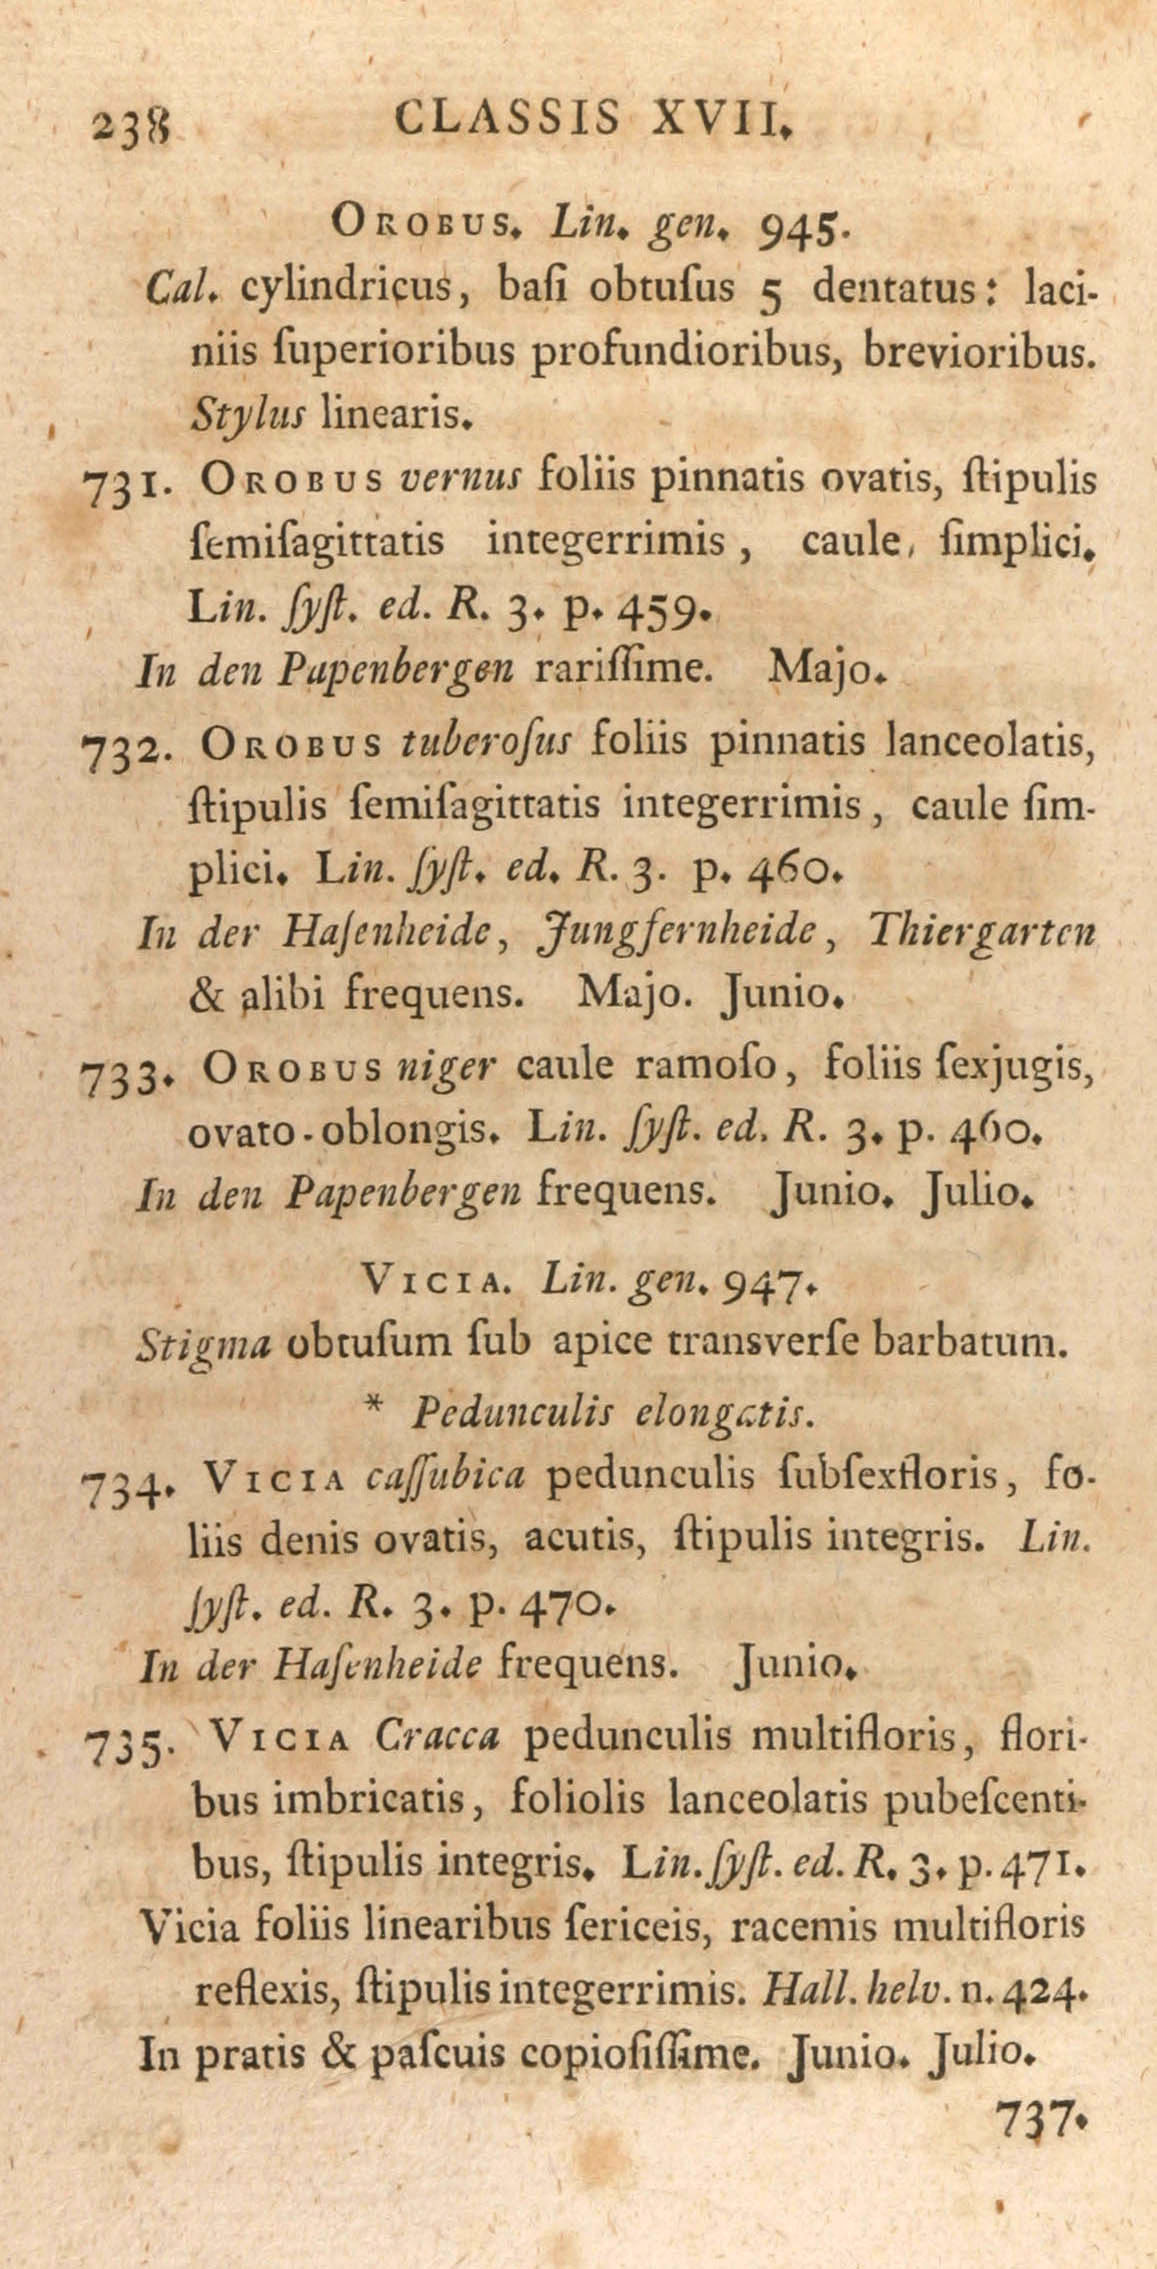 238 CLASSIS XVII.
OROBUS. Lin. gen. 945.
Cal. cylindricus, baſi obtuſus 5 dentatus: laci-
niis ſuperioribus profundioribus, brevioribus.
Stylus linearis.
731. OROBUS vernus foliis pinnatis ovatis, ſtipulis
ſemiſagittatis integerrimis, caule, ſimplici.
Lin. ſyſt. ed. R. 3. p. 459.
In den Papenbergen rariſſime. Majo.
732. OROBUS tuberoſus foliis pinnatis lanceolatis,
ſtipulis ſemiſagittatis integerrimis, caule ſim-
plici. Lin. ſyſt. ed. R. 3. p. 460.
In der Haſenheide, Jungfernheide, Thiergarten
& alibi frequens. Majo. Junio.
733. OROBUS niger caule ramoſo, foliis ſexjugis,
ovato-oblongis. Lin. ſyſt. ed. R. 3. p. 460.
In den Papenbergen frequens. Junio. Julio.
VICIA. Lin. gen. 947.
Stigma obtuſum ſub apice transverſe barbatum.
* Pedunculis elongatis.
734. VICIA caſſubica pedunculis ſubſexfloris, fo-
liis denis ovatis, acutis, ſtipulis integris. Lin.
ſyſt. ed. R. 3. p. 470.
In der Haſenheide frequens. Junio.
735. VICIA Cracca pedunculis multifloris, flori-
bus imbricatis, foliolis lanceolatis pubeſcenti-
bus, ſtipulis integris. Lin. ſyſt. ed. R. 3. p. 471.
Vicia foliis linearibus ſericeis, racemis multifloris
reflexis, ſtipulis integerrimis. Hall. helv. n. 424.
In pratis & paſcuis copioſiſſime. Junio. Julio.
737.